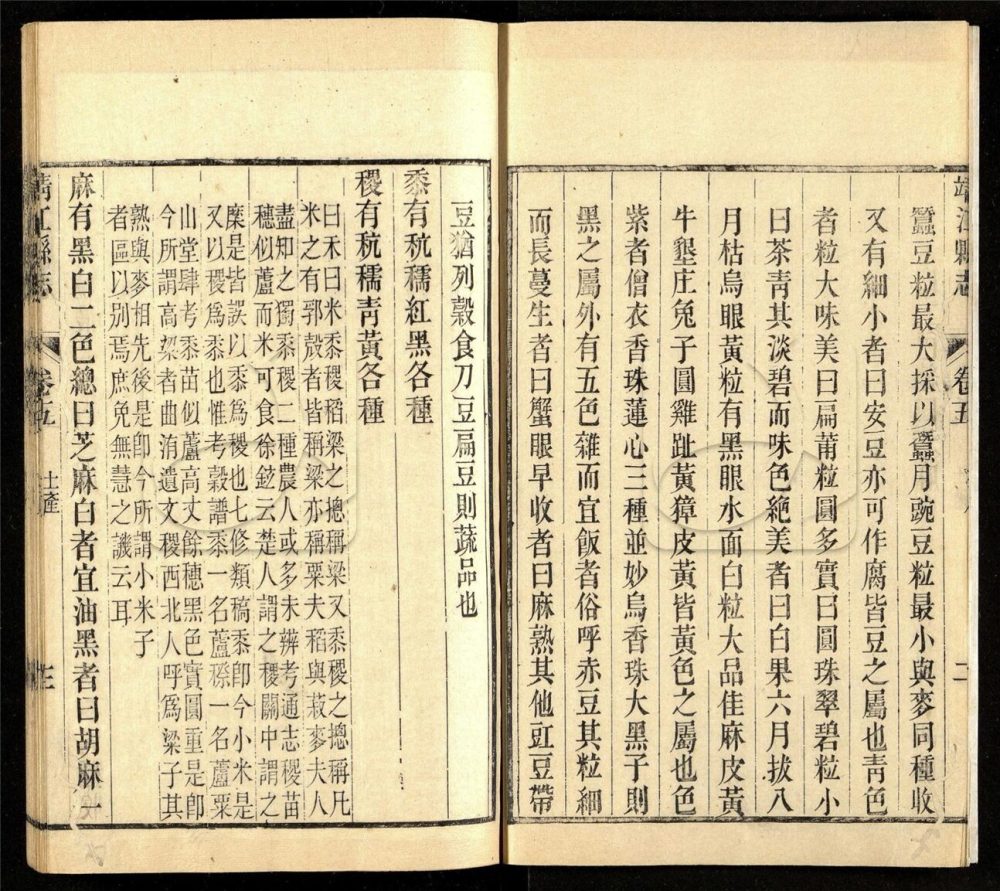 靖江縣志 卷五 二
蠶豆粒最大採以蠶月豌豆粒最小與麥同種收
又有細小者曰安豆亦可作腐皆豆之屬也靑色
者粒大味美曰扁莆粒圓多實曰圓珠翠碧粒小
曰茶靑其淡碧而味色絶美者曰白果六月拔八
月枯烏眼黃粒有黑眼水面白粒大品佳麻皮黃
牛墾庄兔子圓雞趾黃獐皮黃皆黃色之屬也色
紫者僧衣香珠蓮心三種並妙烏香珠大黑子則
黑之屬外有五色雜而宜飯者俗呼赤豆其粒細
而長蔓生者曰蟹眼早收者曰麻熟其他豇豆帶
豆猶列穀食刀豆扁豆則蔬品也
黍有秔穤紅黑各種
稷有秔穤靑黃各種
曰禾曰米黍稷稻粱之摠稱粱又黍稷之摠稱凡
米之有郛殼者皆稱粱亦稱粟夫稻與菽麥夫人
盡知之獨黍稷二種農人或多未辨考通志稷苗
穗似蘆而米可食徐鉉云楚人謂之稷關中謂之
糜是皆誤以黍爲稷也七修類稿黍卽今小米是
又以稷爲黍也惟考穀譜黍一名蘆穄一名蘆粟
山堂肆考黍苗似蘆高丈餘穗黑色實圓重是卽
今所謂高粱者曲洧遺文稷西北人呼爲粱子其
熟與麥相先後是卽今所謂小米子
者區以别焉庶免無慧之譏云耳
麻有黑白二色總曰芝麻白者宜油黑者曰胡麻一
靖江縣志 卷五 土產